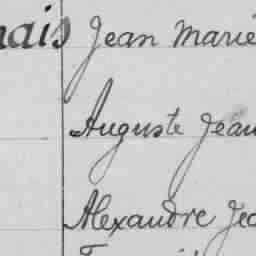 nais Jean Marie
Auguste Jean
Alexandre Jea